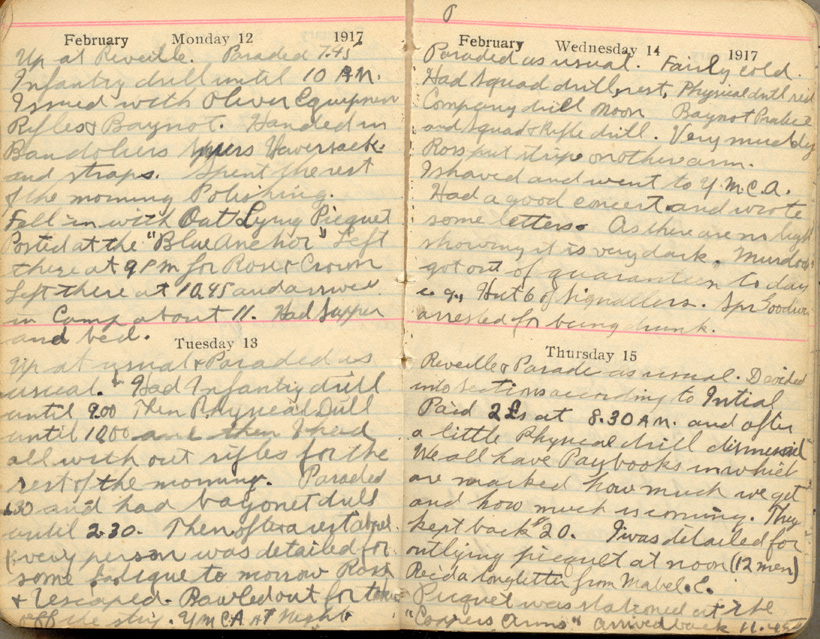 February Monday 12 1917
Up at Reveille. Paraded 7.45
Infantry drill until 10 AM.
Issued with Oliver Equipmen
Rifles & Baynot. Handed in
Bandoliers Spurs Haversack
and straps. Spent the rest
of the morning Polishing.
Fell in with Out Lying Picquet
Posted at the "Blue Anchor" Left
there at 9 PM for Rose & Crown
Left there at 10.45 and arrived
in Camp about 11. Had Supper
and bed.
Tuesday 13
Up at usual & Paraded as
usual. Had Infantry drill
until 9.00 Then Physical Drill
until 10.00 and then I had
all with out rifles for the
rest of the morning. Paraded
1.30 and had bayonet drill
until 2.30. Then after a rest
every person was detailed for
some fatigue to morrow Ross
& I escaped. Bawled out for
off the step. YMCA at Night
February Wednesday 14 1917
Paraded as usual. Fairly cold.
Had Squad drill, rest, Physical drill rest
Company drill Noon Baynot Practice
and Squad & Rifle drill. Very muddy
Ross put stripe on other arm.
I shaved and went to Y.M.C.A.
Had a good concert and wrote
some letters. As there are no light
showing it is very dark. Murdoc
got out of quaranteen to day
e.g., Hut 6 of Signallers. Spr Goodwin
arrested for being drunk.
Thursday 15
Reveille & Parade as usual. Divided
into sections according to Initial
Paid 2£s at 8.30 AM. and after
a little Physical drill dismissed
We all have Paybooks in which
are marked how much we get
and how much is coming. They
kept back $20. I was detailed for
outlying picquet at noon (12 men)
Rec'd a long letter from Mabel. E.
Picquet was stationed at the
"Coopers Arms" arrived back 11.45